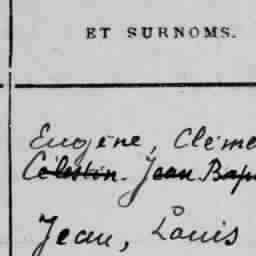 ET SURNOMS.
Eugène, Cléme
Célestin. Jean Bap
Jean, Louis